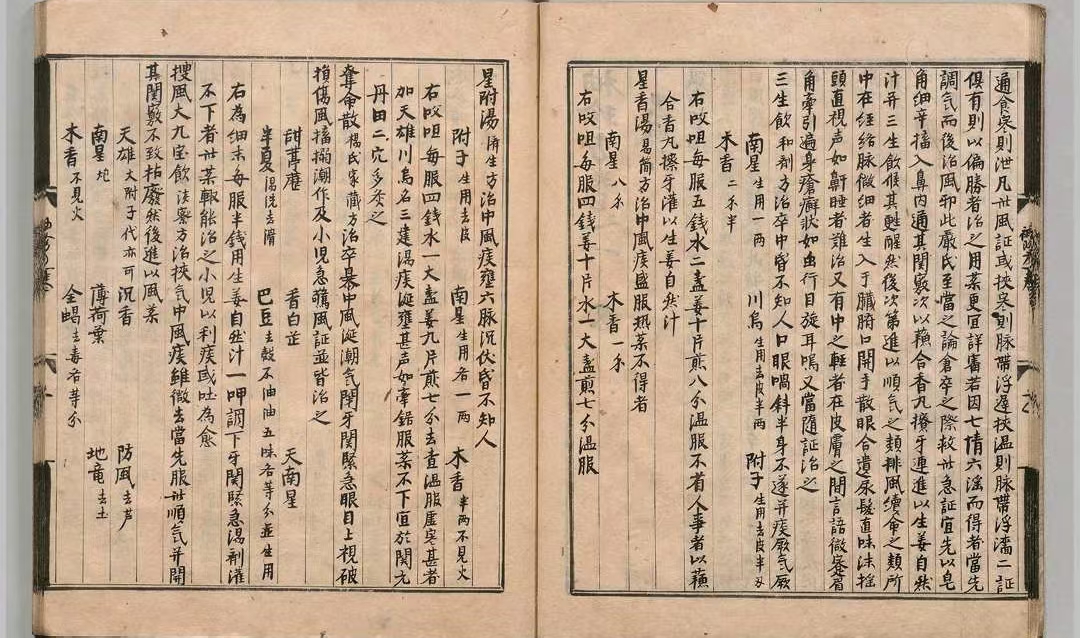 通食寒則泄凡此風証或挾寒則脉帶浮遲挾温則脉帶浮濡二証
俱有則以偏勝者治之用菜更宜詳審若因七情六淫而得者當先
調气而後治風邪此嚴氏至當之論倉卒之際救此急証宜先以皂
角細辛搐入鼻内通其関竅次以蘓合香九擦牙連進以生姜自然
汁并三生飲候其甦醒然後次第進以順气之類排風續命之類所
中在經絡脉微細者生入于臓腑口開手散眼合遺尿髮直吐沫揺
頭直視声如鼾睡者難治又有中之輕者在皮膚之間言語微蹇眉
角牽引遍身瘡癬狀如虫行目旋耳鳴又當隨証治之
三生飲和剤方治卒中昏不知人口眼喎斜半身不遂并痰厥气厥
南星生用一両 川烏生用去皮半両 附子生用去皮半両
木香二𠆤半
右㕮咀每服五錢水二盞姜十片煎八分温服不有人事者以蘓
合香九擦牙灌以生姜自然汁
星香湯易簡方治中風痰盛服熱菜不得者
南星八𠆤 木香一𠆤
右㕮咀每服四錢姜十片水一大盞煎七分温服
星附湯済生方治中風痰壅六脉沉伏昏不知人
附子生用去皮 南星生用各一両 木香半両不見火
右㕮咀每服四錢水一大盞姜九片煎七分去査温服虚寒甚者
加天雄川烏名三建湯痰涎壅甚声如牽鋸服菜不下宜於関元
丹田二穴多灸之
奪命散楊氏家藏方治卒暴中風涎潮气閉牙関緊急眼目上視破
損傷風搐搦潮作及小児急驚風証並皆治之
甜葶藶 香白芷 天南星
半夏湯洗去滑 巴豆去殼不油油五味各等分並生用
右為細末每服半錢用生姜自然汁一呷調下牙関緊急湯剤灌
不下者此菜輙能治之小児以利痰或吐為愈
捜風大九宝飲 方治挾气中風痰雖微去當先服此順气并開
其関竅不致枯廢然後進以風菜
天雄大附子代亦可 沉香 防風去芦
南星炮 薄荷葉 地竜去土
木香不見火 全蝎去毒各等分